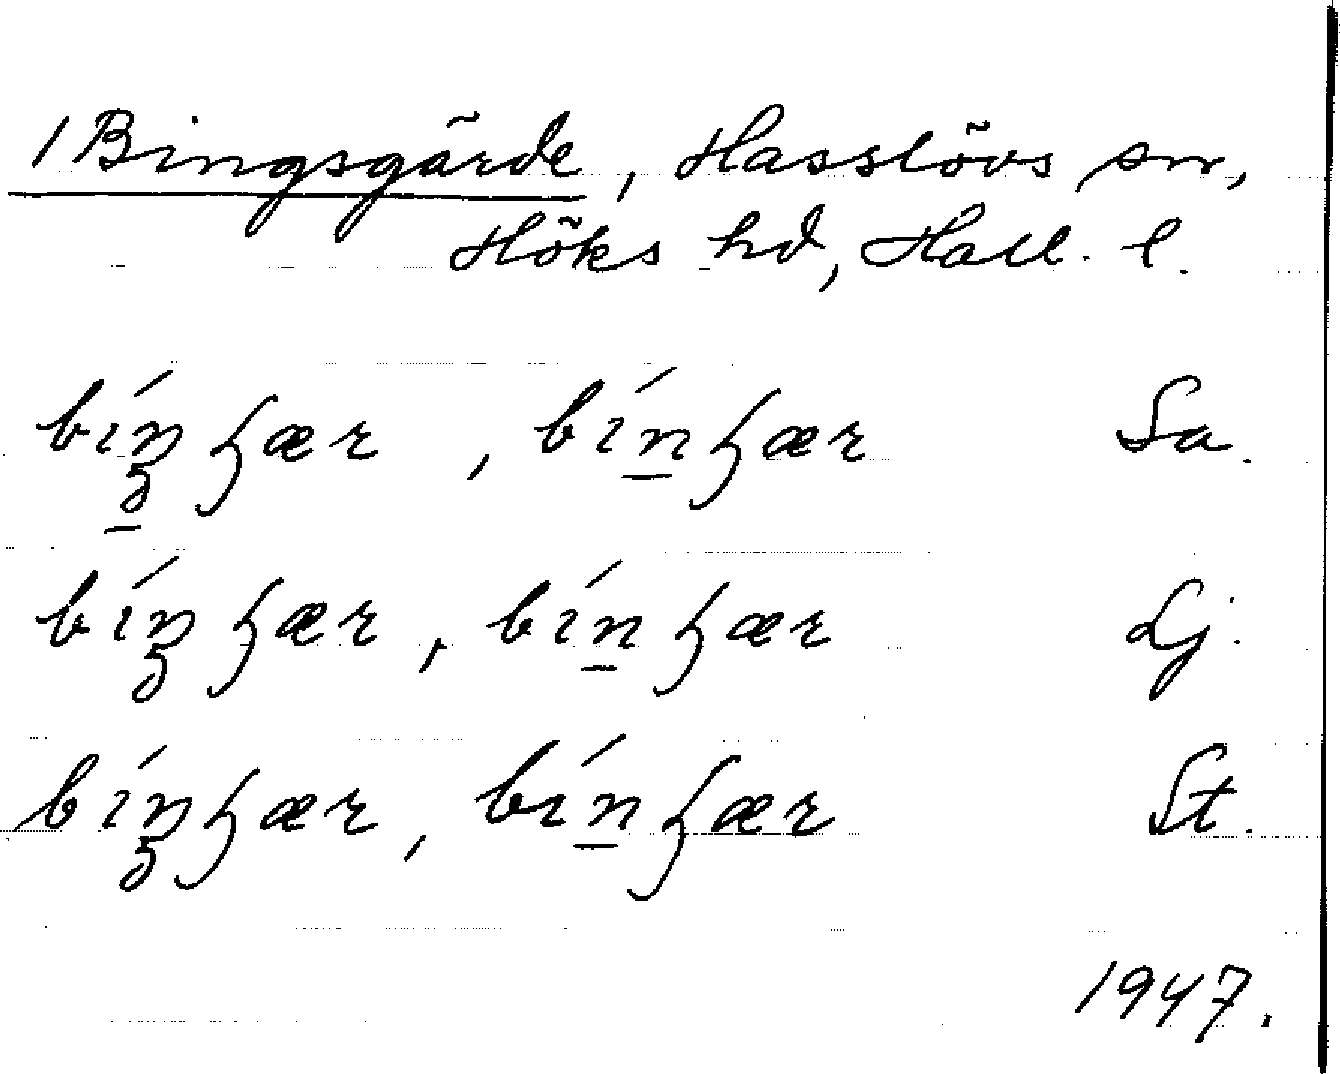 1 Bingsgärde, Hasslövs sn,
Höks hd, Hall. l.
bíŋʒær, bínʒær Sa.
bíŋʒær, bínʒær Lj.
bíŋʒær, bínʒær St.
1947.